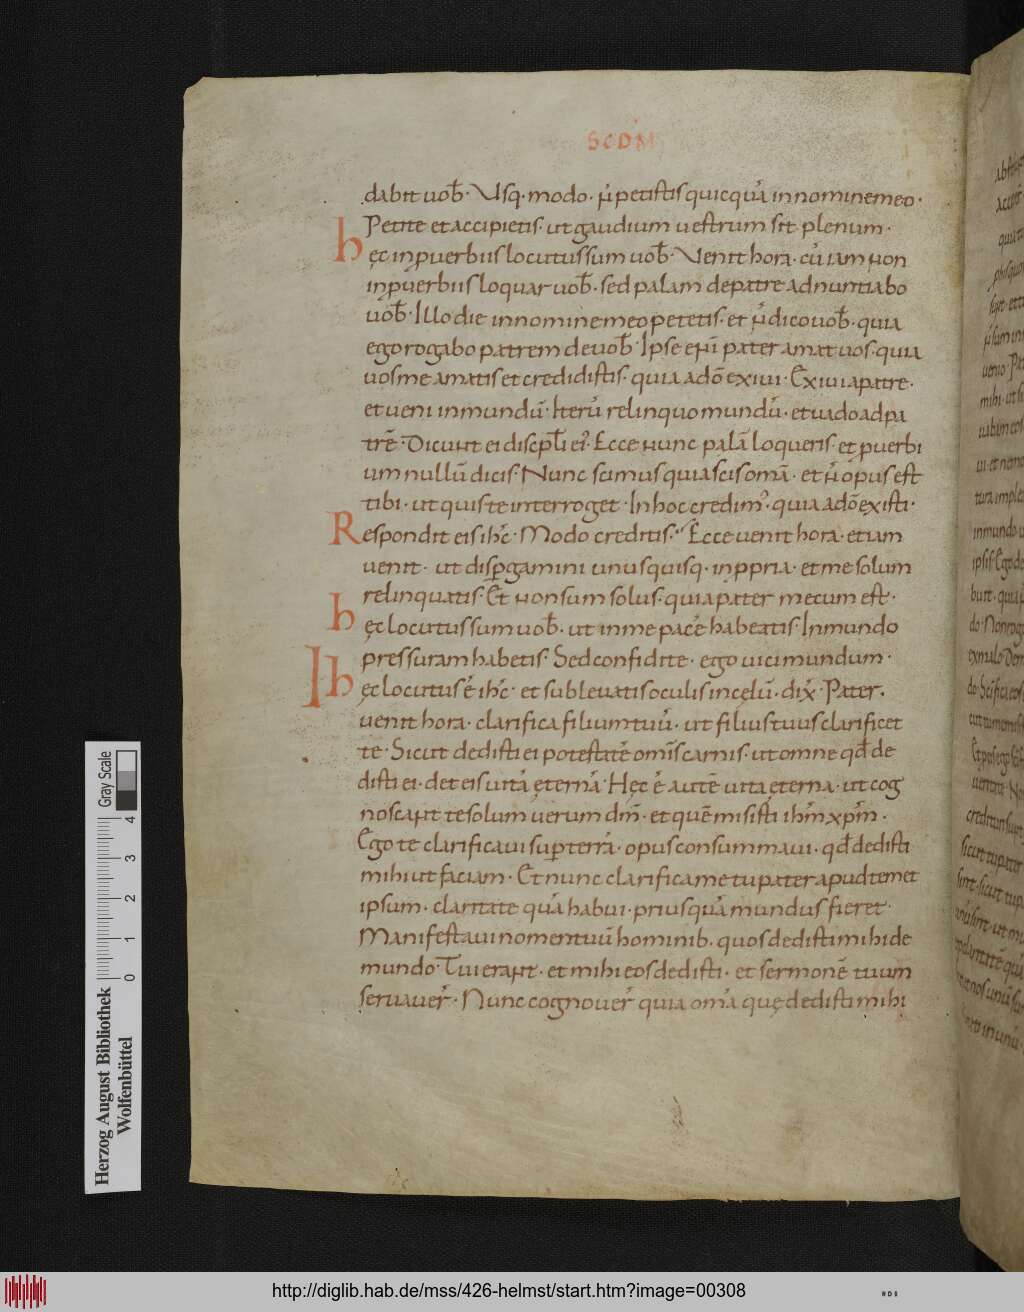 SCDM
dabit uob̄· Usq· modo· n̄ petistis quicquā in nomine meo·
Petite et accipietis· ut gaudium uestrum sit plenum·
hęc in puerbiis locutus sum uob̄· Uenit hora· cū iam non
in puerbiis loquar uob̄· sed palam de patre adnuntiabo
uob̄· Illo die in nomine meo petetis· et n̄ dico uob̄· quia
ego rogabo patrem de uob̄· Ipse enī pater amat uos· quia
uos me amatis et credidistis· quia a dō exiui· Exiui a patre·
et ueni in mundū· Iterū relinquo mundū· et uado ad pa
trē· Dicunt ei discpl̄i ei᾽· Ecce nunc palā loqueris· et puerbi
um nullū dicis· Nunc scimus quia scis omā· et n̄ opus est
tibi· ut quis te interroget· In hoc credim᾽· quia a dō existi·
Respondit eis ih̄c· Modo creditis· Ecce uenit hora· et iam
uenit· ut dispgamini unusquisq· in ppria· et me solum
relinquatis· Et non sum solus· quia pater mecum est·
hęc locutus sum uob̄· ut in me pacē habeatis· In mundo
pressuram habetis· Sed confidite· ego uici mundum·
hęc locutus ē ih̄c· et subleuatis oculis in cęlū· dix̄· Pater·
uenit hora· clarifica filium tuū· ut filius tuus clarificet
te· Sicut dedisti ei potestatē omīs carnis· ut omne qd̄ de
disti ei· det eis uitā ęternā· Hęc ē autē uita ęterna· ut cog
noscant te solum uerum dm̄· et quē misisti ihm̄ xpm̄·
Ego te clarificaui sup terrā· opus consummaui· qd̄ dedisti
mihi ut faciam· Et nunc clarifica me tu pater apud temet
ipsum· claritate quā habui· priusquā mundus fieret·
Manifestaui nomen tuū hominib· quos dedisti mihi de
mundo· Tui erant· et mihi eos dedisti· et sermonē tuum
seruauer̄· Nunc cognouer̄ quia omā quę dedisti mihi
Gray Scale
0 1 2 3 4
Herzog August Bibliothek
Wolfenbüttel
http://diglib.hab.de/mss/426-helmst/start.htm?image=00308